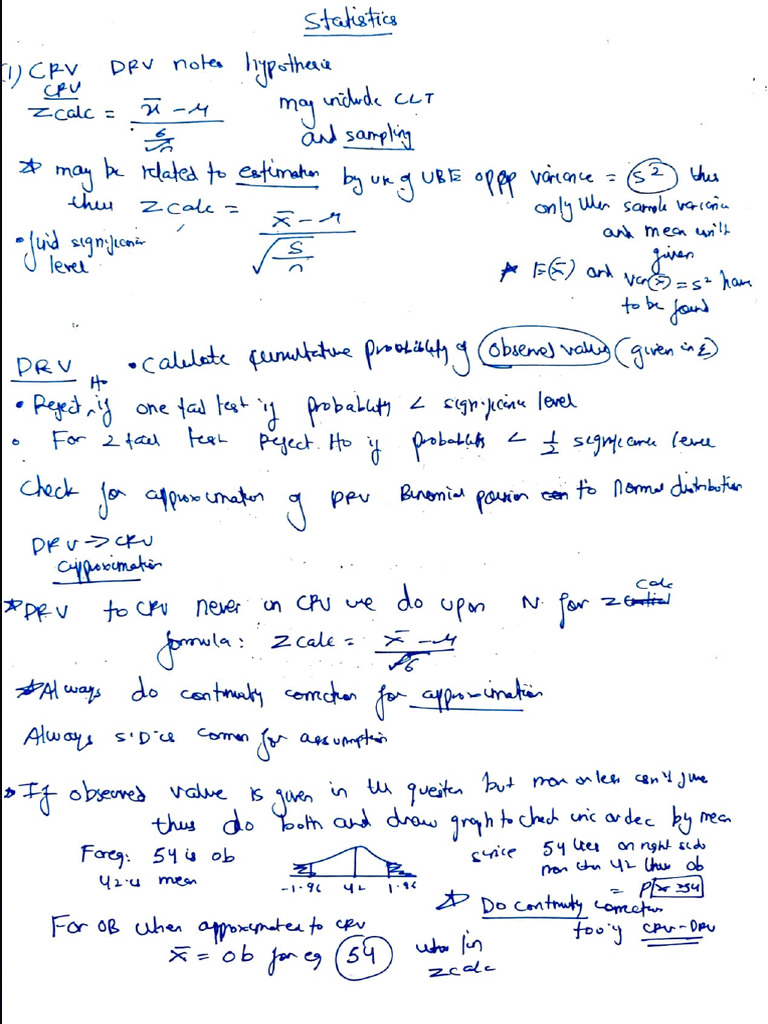 Statistics
(1) CRV DRV notes hypothesis
CRV
Zcalc = x̄ - μ / σ/√n
may include CLT
and sampling
* may be related to estimation by use of UBE of pop variance = s² thus
thus Zcalc = x̄ - μ / √ s/n
only when sample variance
and mean will
given
• find significance
level
* E(x̄) and var(x̄) = s² have
to be found
DRV • Calculate cumulative probability of observed value (given in Q)
• Reject H₀ if one tail test if probability < significance level
• For 2 tail test Reject H₀ if probability < 1/2 significance level
Check for approximation of DRV Binomial poisson to Normal distribution
DRV → CRV
approximation
* DRV to CRV never in CRV we do upon N. for Z calc
formula: Zcalc = x̄ - μ / √σ
* Always do continuity correction for approximation
Always S.D is common for assumption
• If observed value is given in the question but more or less isn't give
thus do both and draw graph to check inc or dec by mean
For eg: 54 is ob
42 is mean
-1.96 42 1.96
since 54 lies on right side
more than 42 thus ob
= P(x ≥ 54)
* Do continuity correction
too if CRV-DRV
For OB when approximated to CRV
x̄ = ob for eg 54 use in
zcalc